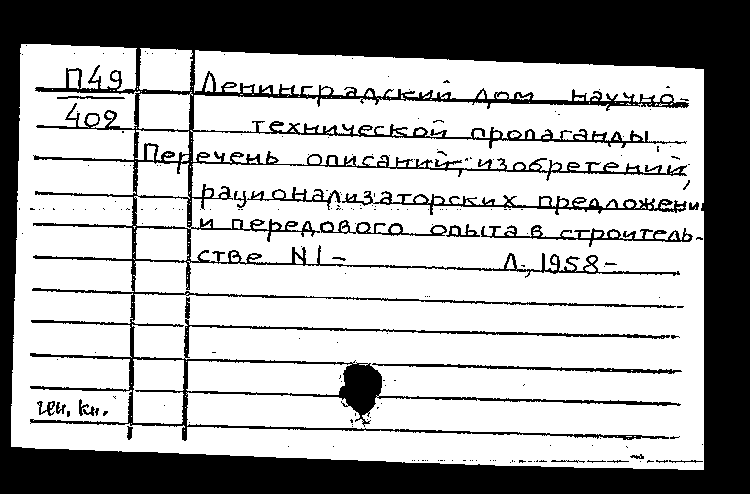 П49
402
Ленинградский дом научно-
технической пропаганды.
Перечень описаний, изобретений,
рационализаторских предложений
и передового опыта в строитель-
стве N1- Л., 1958-
ген. кн.